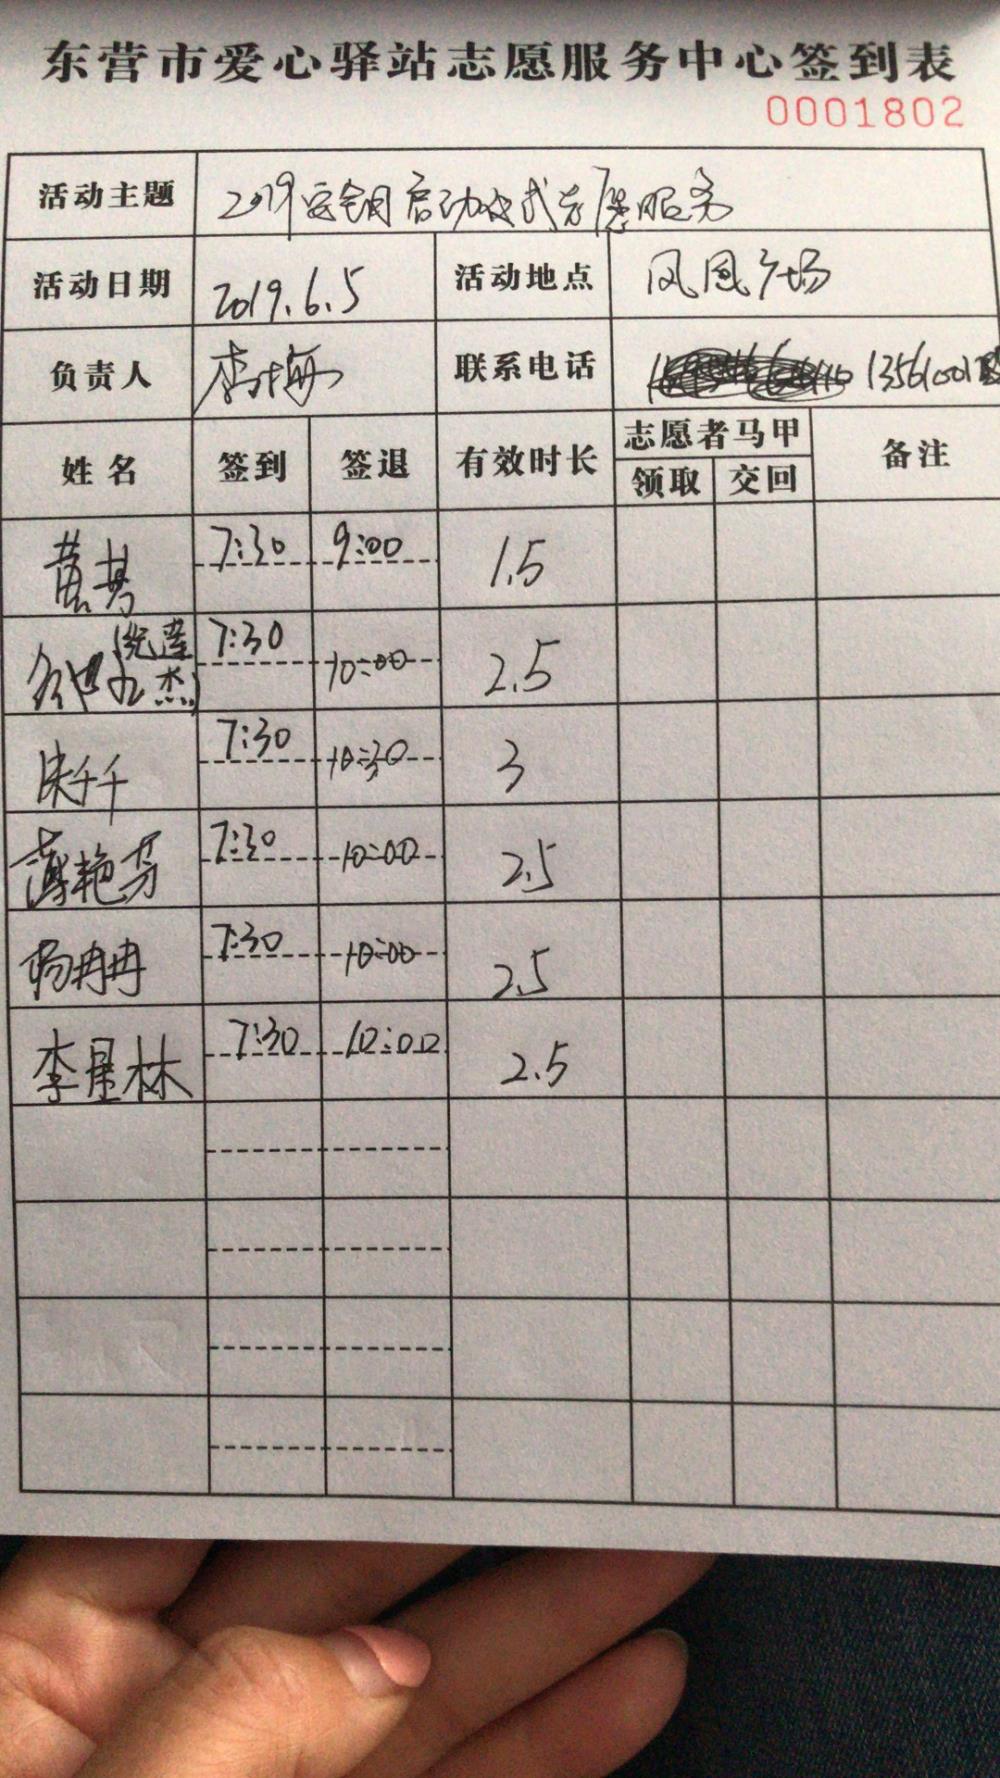 东营市爱心驿站志愿服务中心签到表
0001802
活动主题 2019安全月启动仪式志愿服务
活动日期 2019.6.5 活动地点 凤凰广场
负责人 李梅 联系电话 13561001
姓名 签到 签退 有效时长 志愿者马甲 备注
领取 交回
7:30 9:00 1.5
7:30 10:00 2.5
千千 7:30 10:30 3
薄艳芳 7:30 10:00 2.5
杨冉冉 7:30 10:00 2.5
李星林 7:30 10:00 2.5